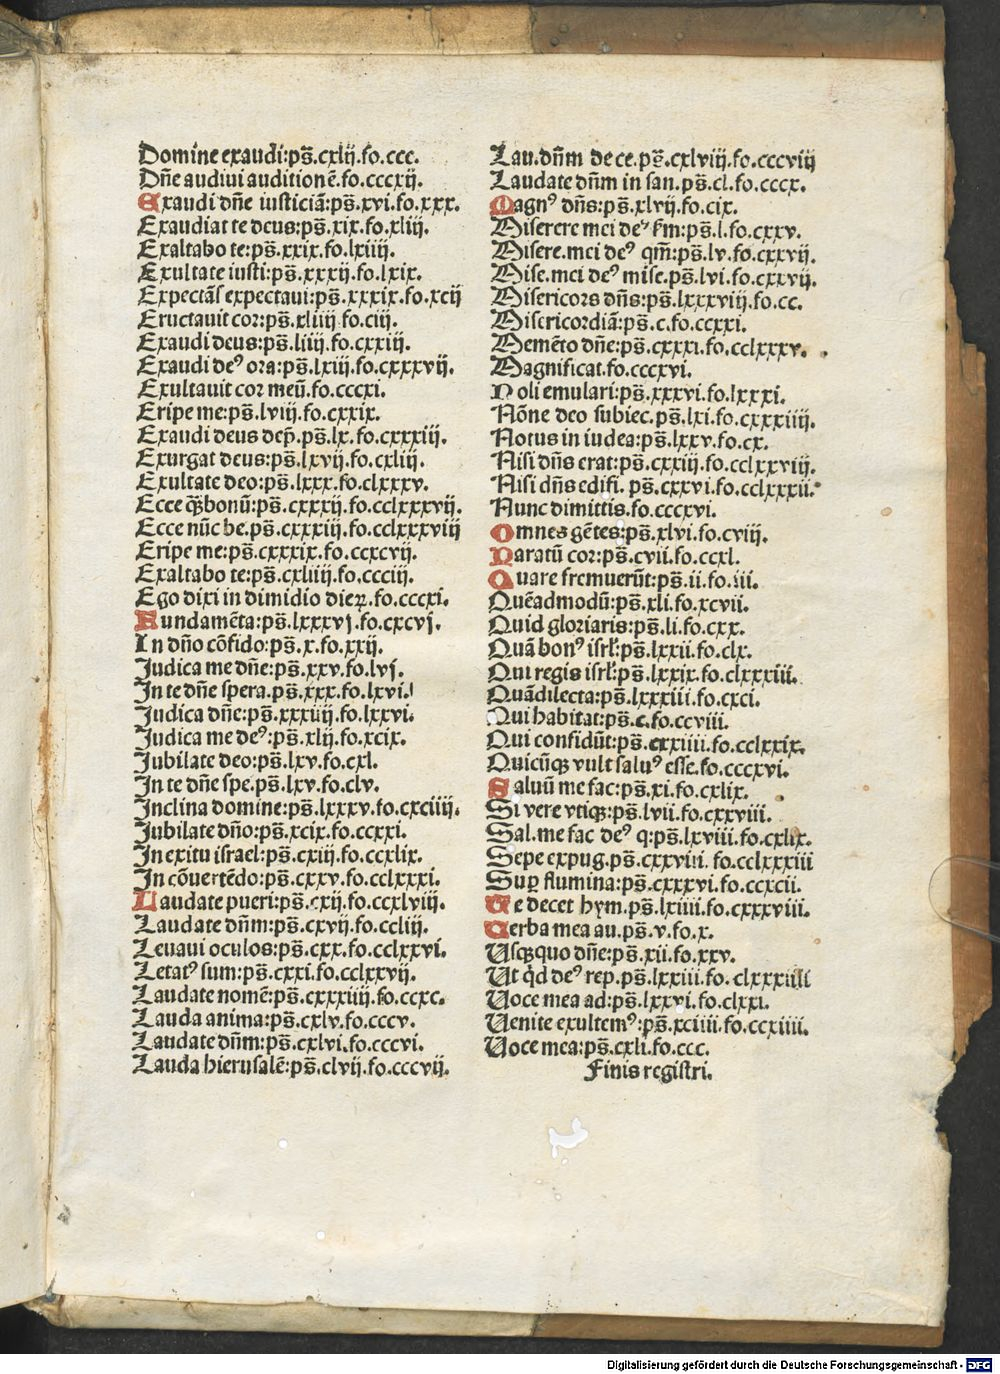 Domine exaudi:ps̄.cxlij.fo.ccc.
Dn̄e audiui auditionē.fo.cccxij.
Exaudi dn̄e iusticiā:ps̄.xvi.fo.xxx.
Exaudiat te deus:ps̄.xix.fo.xliij.
Exaltabo te:ps̄.xxix.fo.lxiiij.
Exultate iusti:ps̄.xxxij.fo.lxix.
Expectās expectaui:ps̄.xxxix.fo.xcij
Eructauit cor:ps̄.xliiij.fo.ciij.
Exaudi deus:ps̄.liiij.fo.cxxiij.
Exaudi deꝰ ora:ps̄.lxiij.fo.cxxxvij.
Exultauit cor meū.fo.cccxi.
Eripe me:ps̄.lviij.fo.cxxix.
Exaudi deus dep̄.ps̄.lx.fo.cxxxiij.
Exurgat deus:ps̄.lxvij.fo.cxliij.
Exultate deo:ps̄.lxxx.fo.clxxxv.
Ecce q̄ꝫbonū:ps̄.cxxxij.fo.cclxxxvij.
Ecce nūc be.ps̄.cxxxiij.fo.cclxxxviij
Eripe me:ps̄.cxxxix.fo.ccxcvij.
Exaltabo te:ps̄.cxliiij.fo.ccciij.
Ego dixi in dimidio dieꝝ.fo.cccxi.
Fundamēta:ps̄.lxxxvj.fo.cxcvj.
In dn̄o cōfido:ps̄.x.fo.xxij.
Judica me dn̄e:ps̄.xxv.fo.lvj.
In te dn̄e spera.ps̄.xxx.fo.lxvi.
Judica dn̄e:ps̄.xxxiiij.fo.lxxvi.
Judica me deꝰ:ps̄.xlij.fo.xcix.
Jubilate deo:ps̄.lxv.fo.cxl.
In te dn̄e spe.ps̄.lxv.fo.clv.
Inclina domine:ps̄.lxxxv.fo.cxciiij.
Jubilate dn̄o:ps̄.xcix.fo.ccxxi.
In exitu israel:ps̄.cxiij.fo.ccxlix.
In cōuertēdo:ps̄.cxxv.fo.cclxxxi.
Laudate pueri:ps̄.cxij.fo.ccxlviij.
Laudate dn̄m:ps̄.cxvij.fo.ccliij.
Leuaui oculos:ps̄.cxx.fo.cclxxvi.
Letatꝰ sum:ps̄.cxxi.fo.cclxxvij.
Laudate nomē:ps̄.cxxxiiij.fo.ccxc.
Lauda anima:ps̄.cxlv.fo.cccv.
Laudate dn̄m:ps̄.cxlvi.fo.cccvi.
Lauda hierusalē:ps̄.clvij.fo.cccvij.
Lau.dn̄m de ce.ps̄.cxlviij.fo.cccviij
Laudate dn̄m in san.ps̄.cl.fo.cccx.
Magnꝰ dn̄s:ps̄.xlvij.fo.cix.
Miserere mei deꝰ fm:ps̄.l.fo.cxxv.
Misere.mei deꝰ qm̄:ps̄.lv.fo.cxxvij.
Mise.mei deꝰ mise.ps̄.lvi.fo.cxxvij.
Misericors dn̄s:ps̄.lxxxviij.fo.cc.
Misericordiā:ps̄.c.fo.ccxxi.
Memēto dn̄e:ps̄.cxxxi.fo.cclxxxv.
Magnificat.fo.cccxvi.
Noli emulari:ps̄.xxxvi.fo.lxxxi.
Nōne deo subiec.ps̄.lxi.fo.cxxxiiij.
Notus in iudea:ps̄.lxxv.fo.cx.
Nisi dn̄s erat:ps̄.cxxiij.fo.cclxxviij.
Nisi dn̄s edifi.ps̄.cxxvi.fo.cclxxxii.
Nunc dimittis.fo.cccxvi.
Omnes gētes:ps̄.xlvi.fo.cviij.
Paratū cor:ps̄.cvii.fo.ccxl.
Quare fremuerūt:ps̄.ii.fo.iii.
Quēadmodū:ps̄.xli.fo.xcvii.
Quid gloriaris:ps̄.li.fo.cxx.
Quā bonꝰ isrl̄:ps̄.lxxii.fo.clx.
Qui regis isrl̄:ps̄.lxxix.fo.clxxxiii.
Quādilecta:ps̄.lxxxiii.fo.cxci.
Qui habitat:ps̄.c.fo.ccviii.
Qui confidūt:ps̄.cxxiiii.fo.cclxxix.
Quicūqꝫ vult saluꝰ esse.fo.cccxvi.
Saluū me fac:ps̄.xi.fo.cxlix.
Si vere vtiqꝫ:ps̄.lvii.fo.cxxviii.
Sal.me fac deꝰ q:ps̄.lxviii.fo.cxlix.
Sepe expug.ps̄.cxxviii.fo.cclxxxiii
Suꝑ flumina:ps̄.cxxxvi.fo.ccxcii.
Te decet hym.ps̄.lxiiii.fo.cxxxviii.
Verba mea au.ps̄.v.fo.x.
Usqꝫquo dn̄e:ps̄.xii.fo.xxv.
Ut qd deꝰ rep.ps̄.lxxiii.fo.clxxxiiii
Uoce mea ad:ps̄.lxxvi.fo.clxxi.
Uenite exultemꝰ:ps̄.xciiii.fo.ccxiiii.
Uoce mea:ps̄.cxli.fo.ccc.
Finis registri.
Digitalisierung gefördert durch die Deutsche Forschungsgemeinschaft - DFG